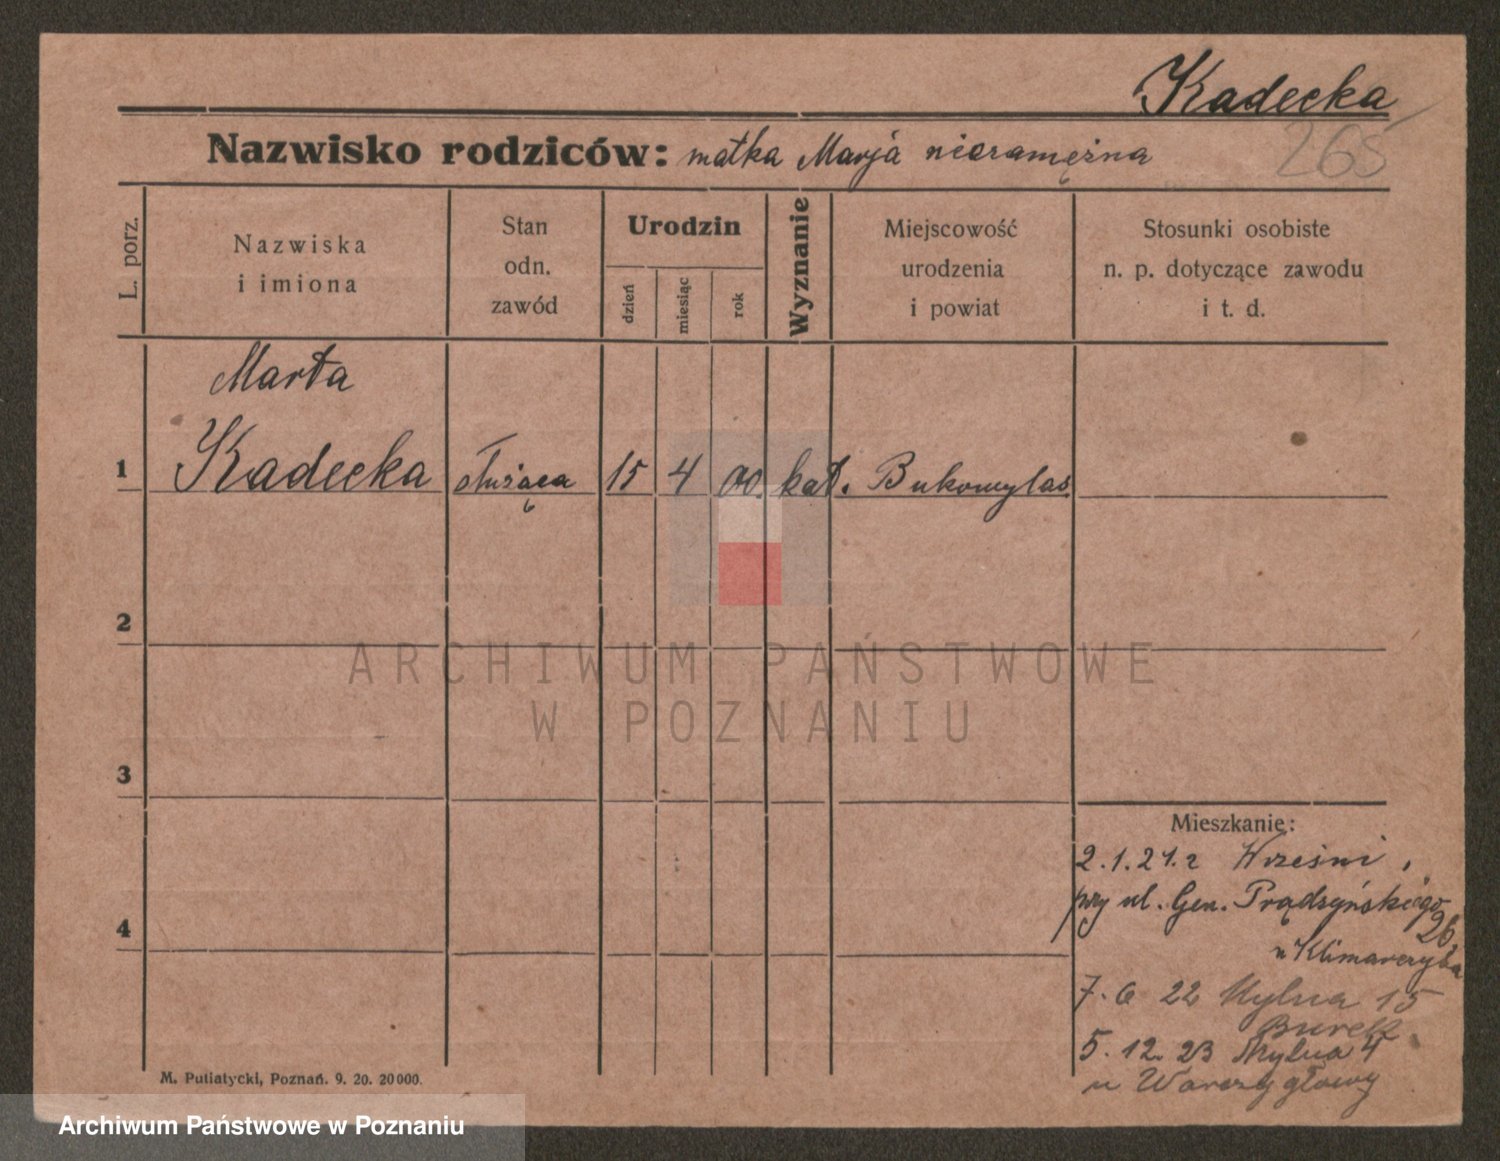 Kadecka
265
Nazwisko rodziców: matka Marja niezamężna
L. porz.
Nazwiska
i imiona
Stan
odn.
zawód
Urodzin
dzień
miesiąc
rok
Wyznanie
Miejscowość
urodzenia
i powiat
Stosunki osobiste
n. p. dotyczące zawodu
i t. d.
Marta
1 Kadecka służąca 15 4 00. kat. Bukowylas
2
3
4
ARCHIWUM PAŃSTWOWE
W POZNANIU
Mieszkanie:
2.1.21.r Wrześni,
przy ul. Gen. Prądzyńskiego
26,
u
7.6 22 Mylna 15
5.12.23 Mylna 4
u
M. Putiatycki, Poznań. 9. 20. 20000.
Archiwum Państwowe w Poznaniu